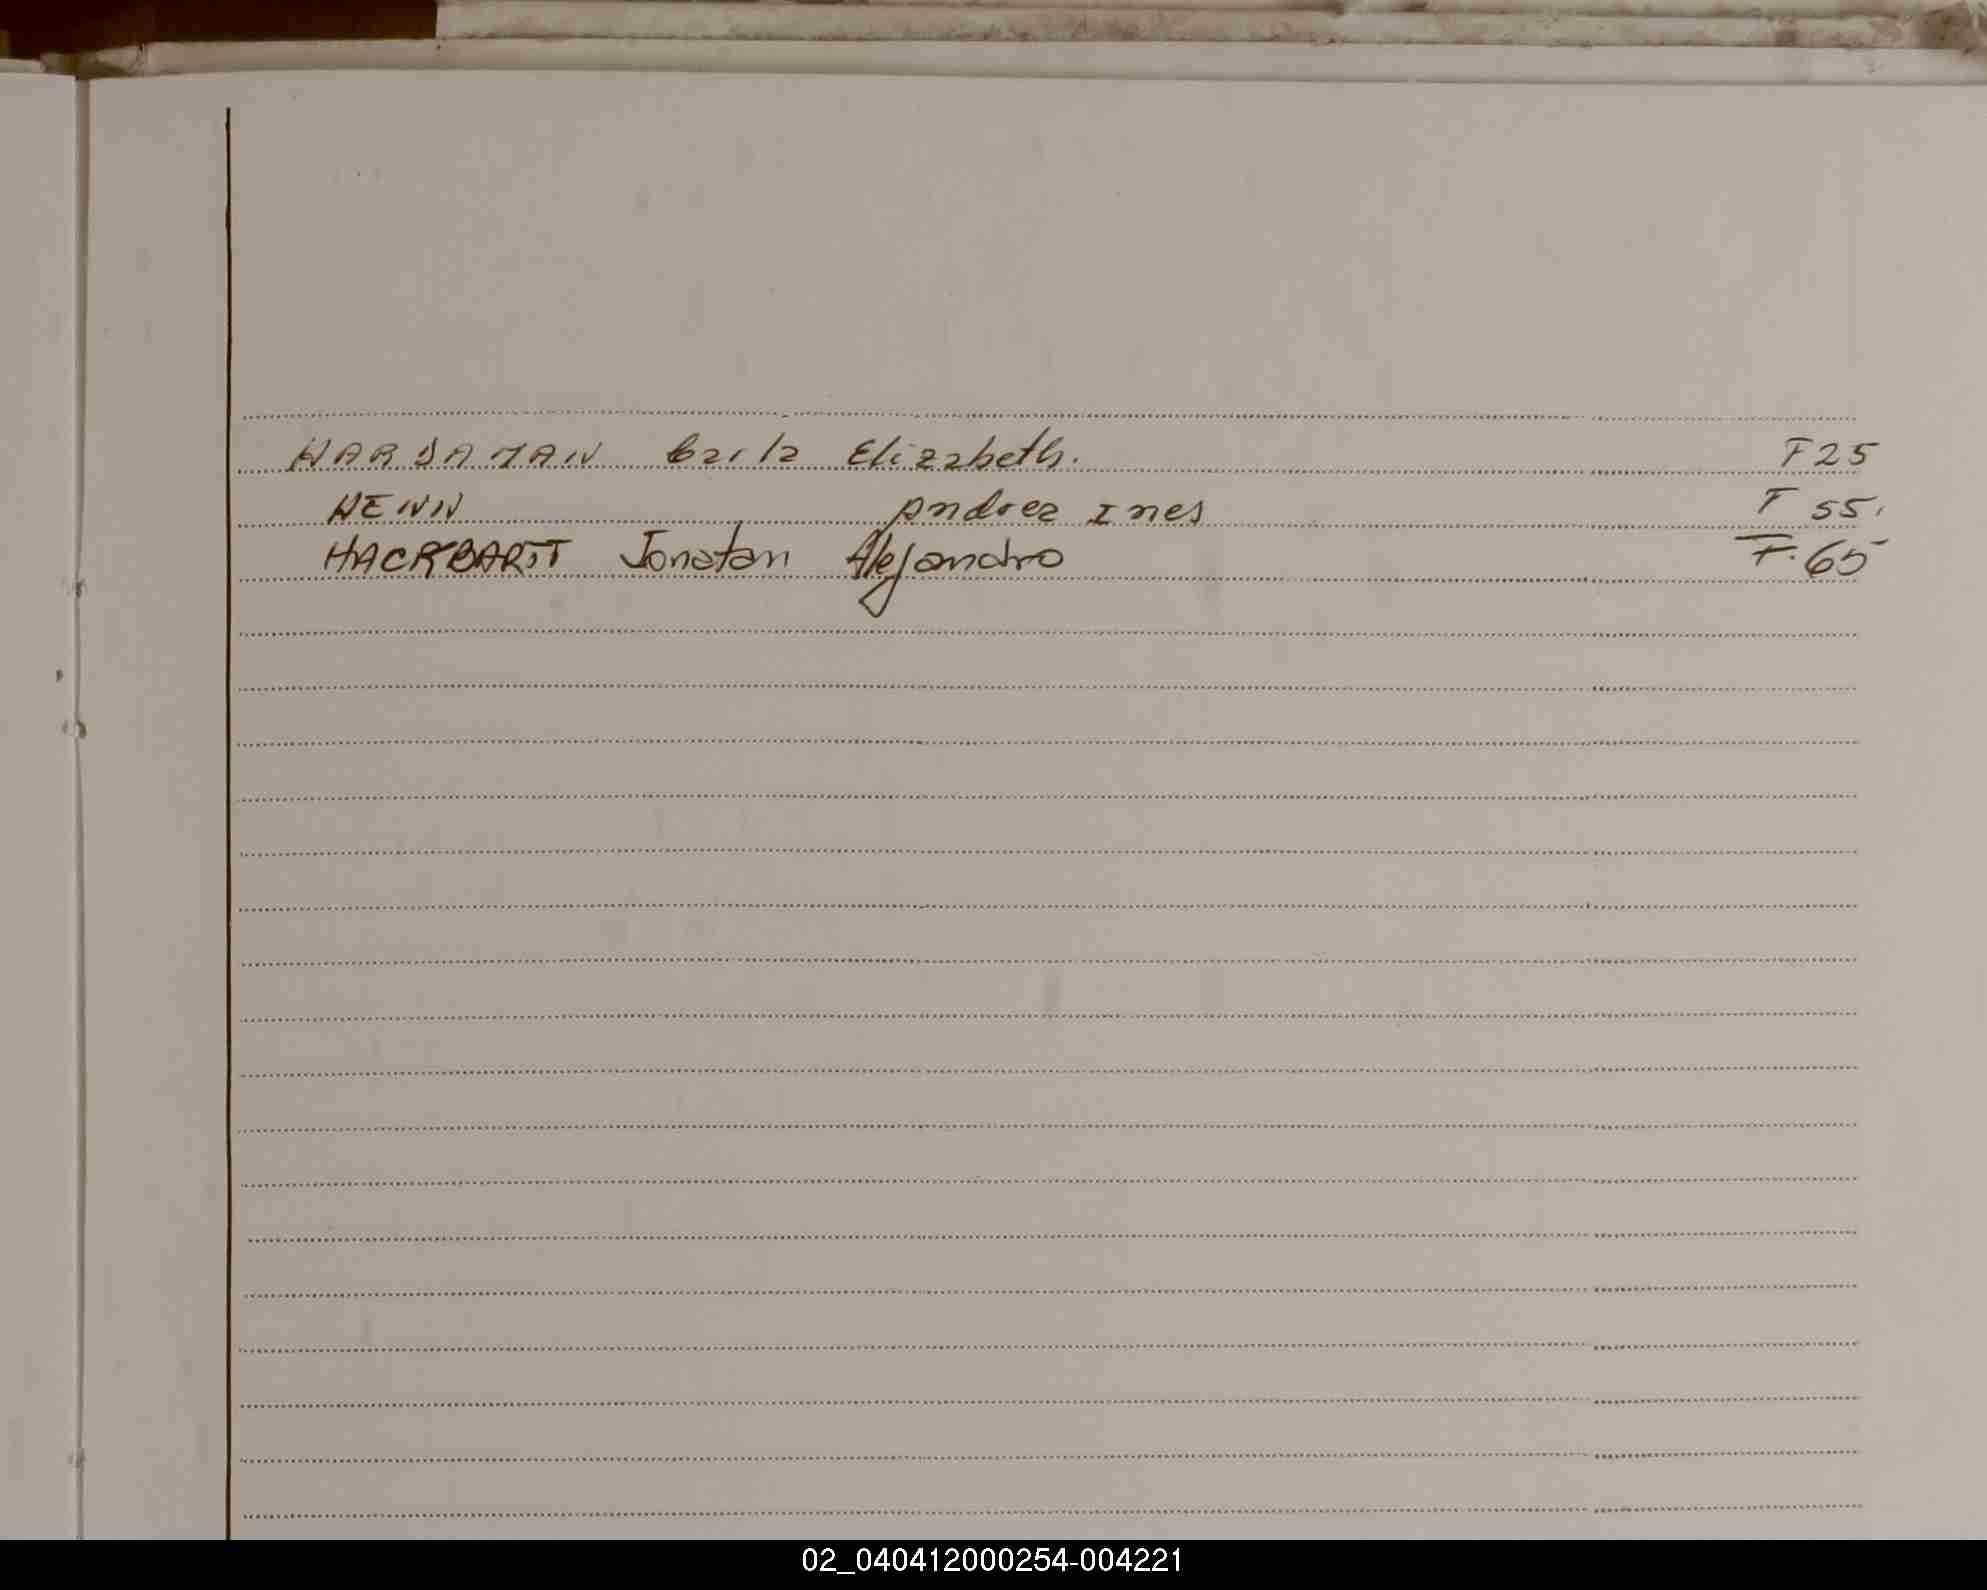 HARDAMAN Carla Elizabeth. F 25
HENN Andrea Ines F 55.
HACKBARTT Jonatan Alejandro F. 65
02_040412000254-004221